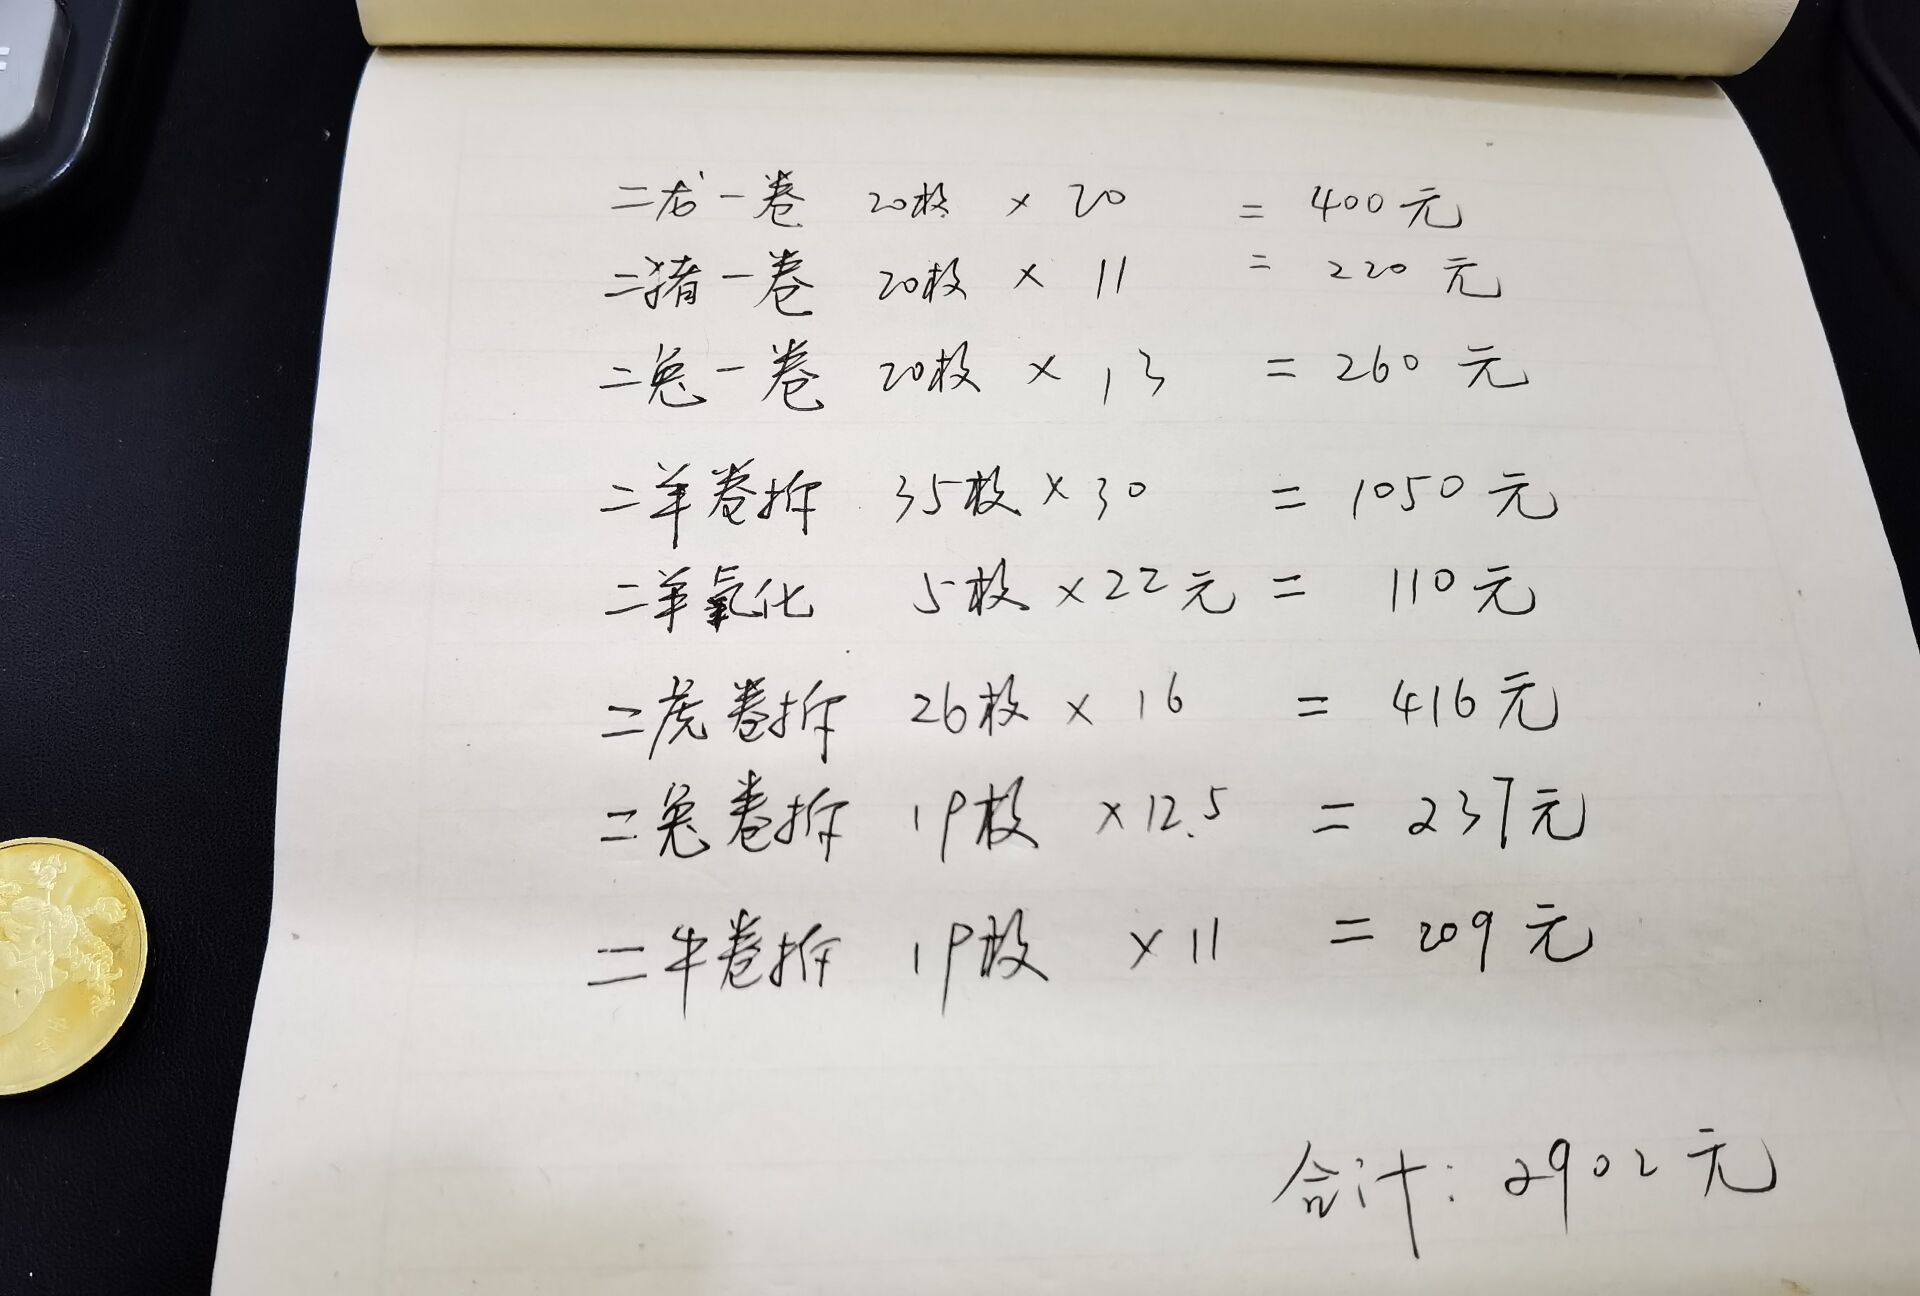 二龙一卷 20枚 × 20 = 400元
二猪一卷 20枚 × 11 = 220元
二兔一卷 20枚 × 13 = 260元
二羊卷拆 35枚 × 30 = 1050元
二羊氧化 5枚 × 22元 = 110元
二虎卷拆 26枚 × 16 = 416元
二兔卷拆 19枚 × 12.5 = 237元
二牛卷拆 19枚 × 11 = 209元
合计: 2902元